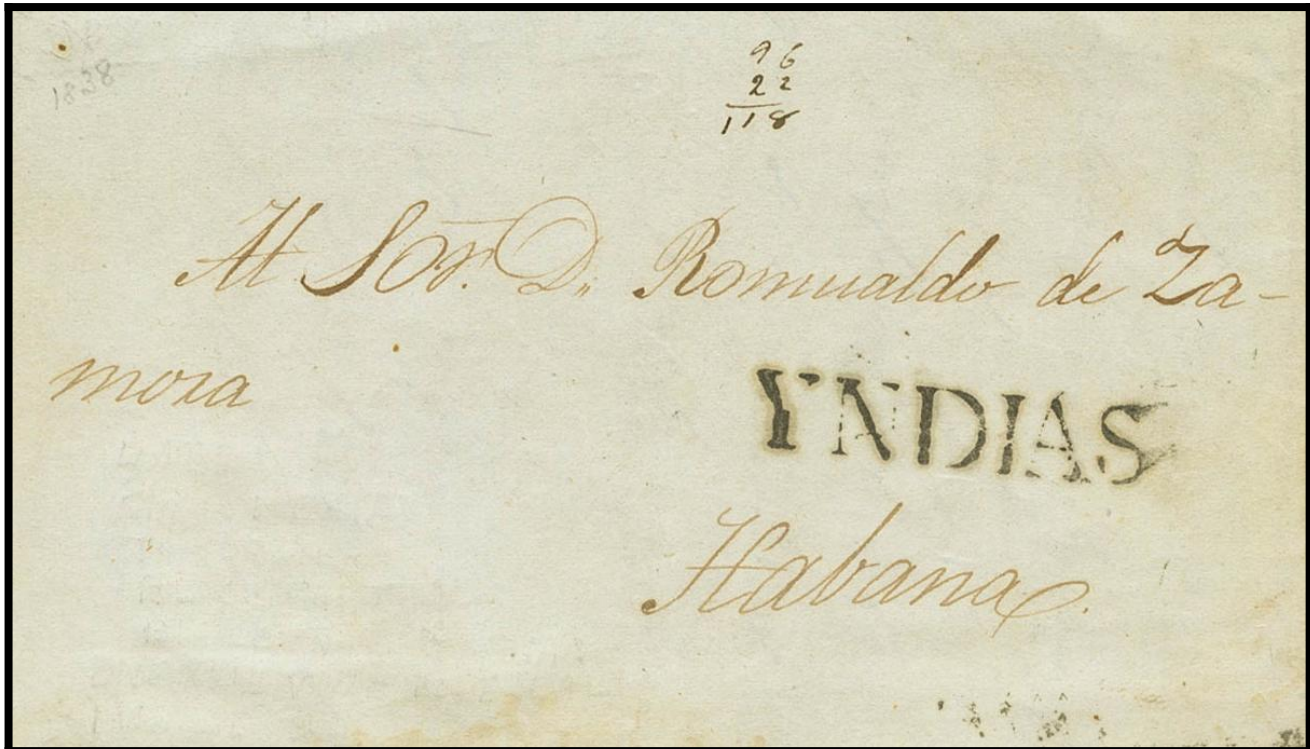 1838
96
22
118
Al Sor. D. Romualdo de Za-
mora
YNDIAS
Habana